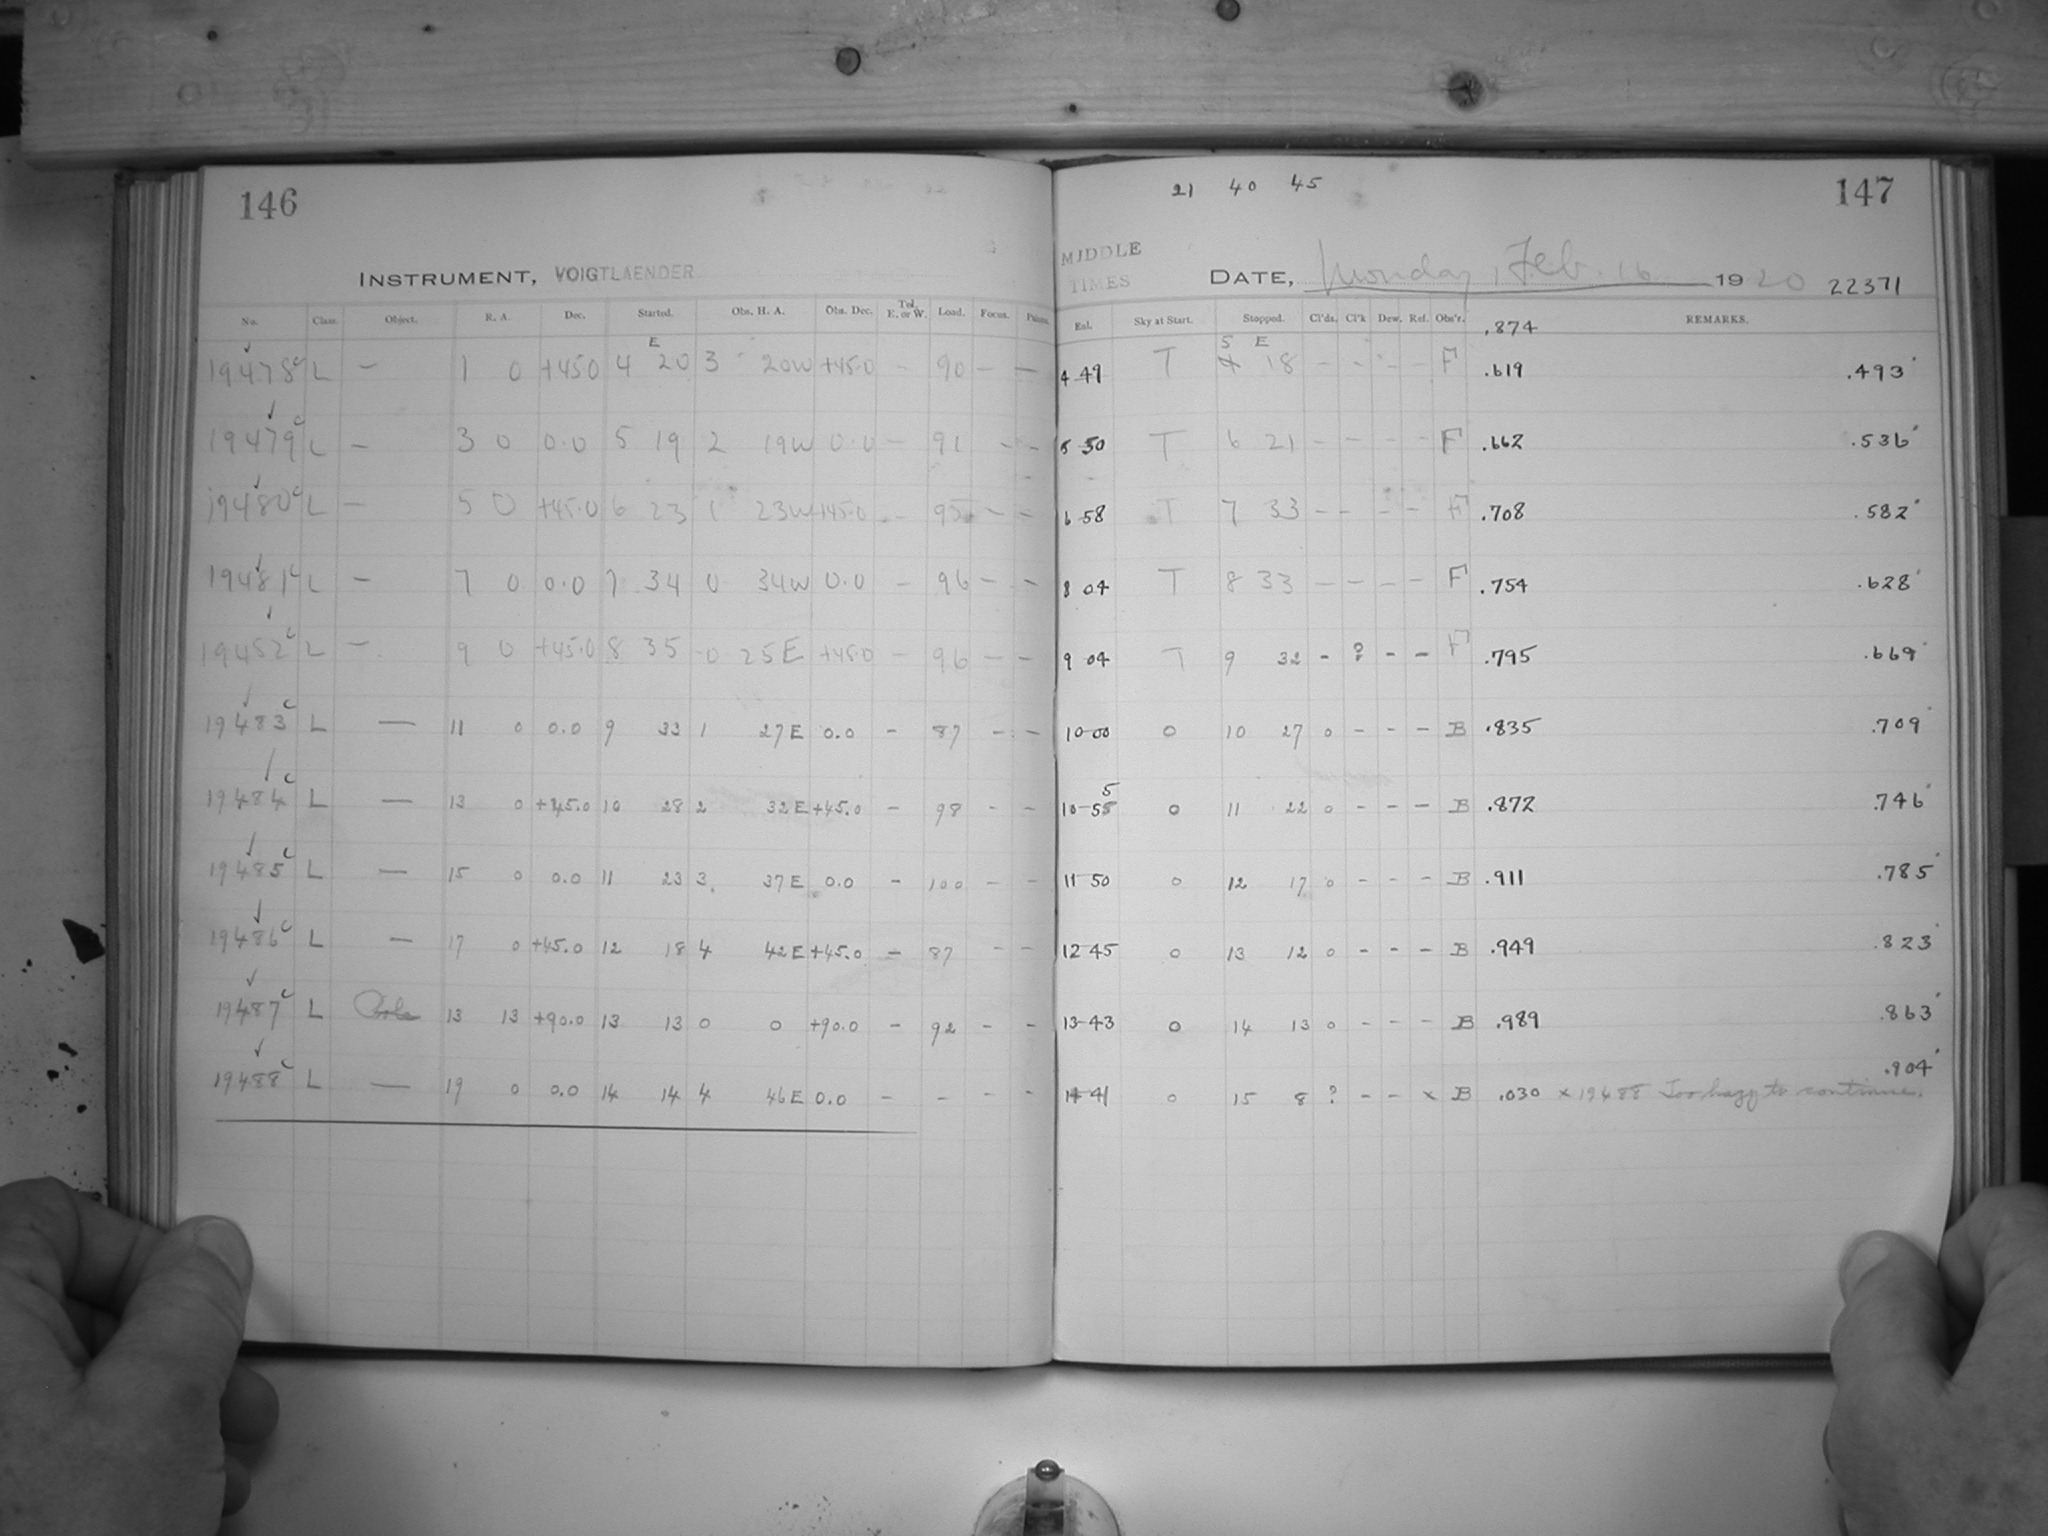 146
21 40 45
147
INSTRUMENT, VOIGTLAENDER
MIDDLE TIMES
DATE, Monday, Feb. 16 1920 22371
No. Class. Object. R. A. Dec. Started. Obs. H. A. Obs. Dec. Tel. E. or W. Load. Focus. Exl. Sky at Start. Stopped. Cl'ds. Cl'k Dew. Ref. Obs'r. .874 REMARKS.
E S E
19478c L — 1 0 +45.0 4 20 3 20W +45.0 - 90 — — 4-49 T 4 18 - - - - F .619 .493
19479c L — 3 0 0.0 5 19 2 19W 0.0 — 91 - - 5-50 T 6 21 - - - - F .662 .536
19480c L — 5 0 +45.0 6 23 1 23W +45.0 - 95 - - 6-58 T 7 33 - - - - F .708 .582
19481c L — 7 0 0.0 7 34 0 34W 0.0 - 96 - - 8 04 T 8 33 - - - - F .754 .628
19482c L — 9 0 +45.0 8 35 -0 25E +45.0 - 96 - - 9-04 T 9 32 - ? - - F .795 .669
19483c L — 11 0 0.0 9 33 1 27E 0.0 - 87 - - 10-00 0 10 27 0 - - - B .835 .709
5
19484c L — 13 0 +45.0 10 28 2 32E +45.0 - 98 - - 10-55 0 11 22 0 - - - B .872 .746
19485c L — 15 0 0.0 11 23 3 37E 0.0 - 100 - - 11-50 0 12 17 0 - - - B .911 .785
19486c L — 17 0 +45.0 12 18 4 42E +45.0 - 87 - - 12-45 0 13 12 0 - - - B .949 .823
19487c L Pole 13 13 +90.0 13 13 0 0 +90.0 - 92 - - 13-43 0 14 13 0 - - - B .989 .863
19488c L — 19 0 0.0 14 14 4 46E 0.0 - - - - 14-41 0 15 8 ? - - x B .030 x 19488 Too hazy to continue. .904